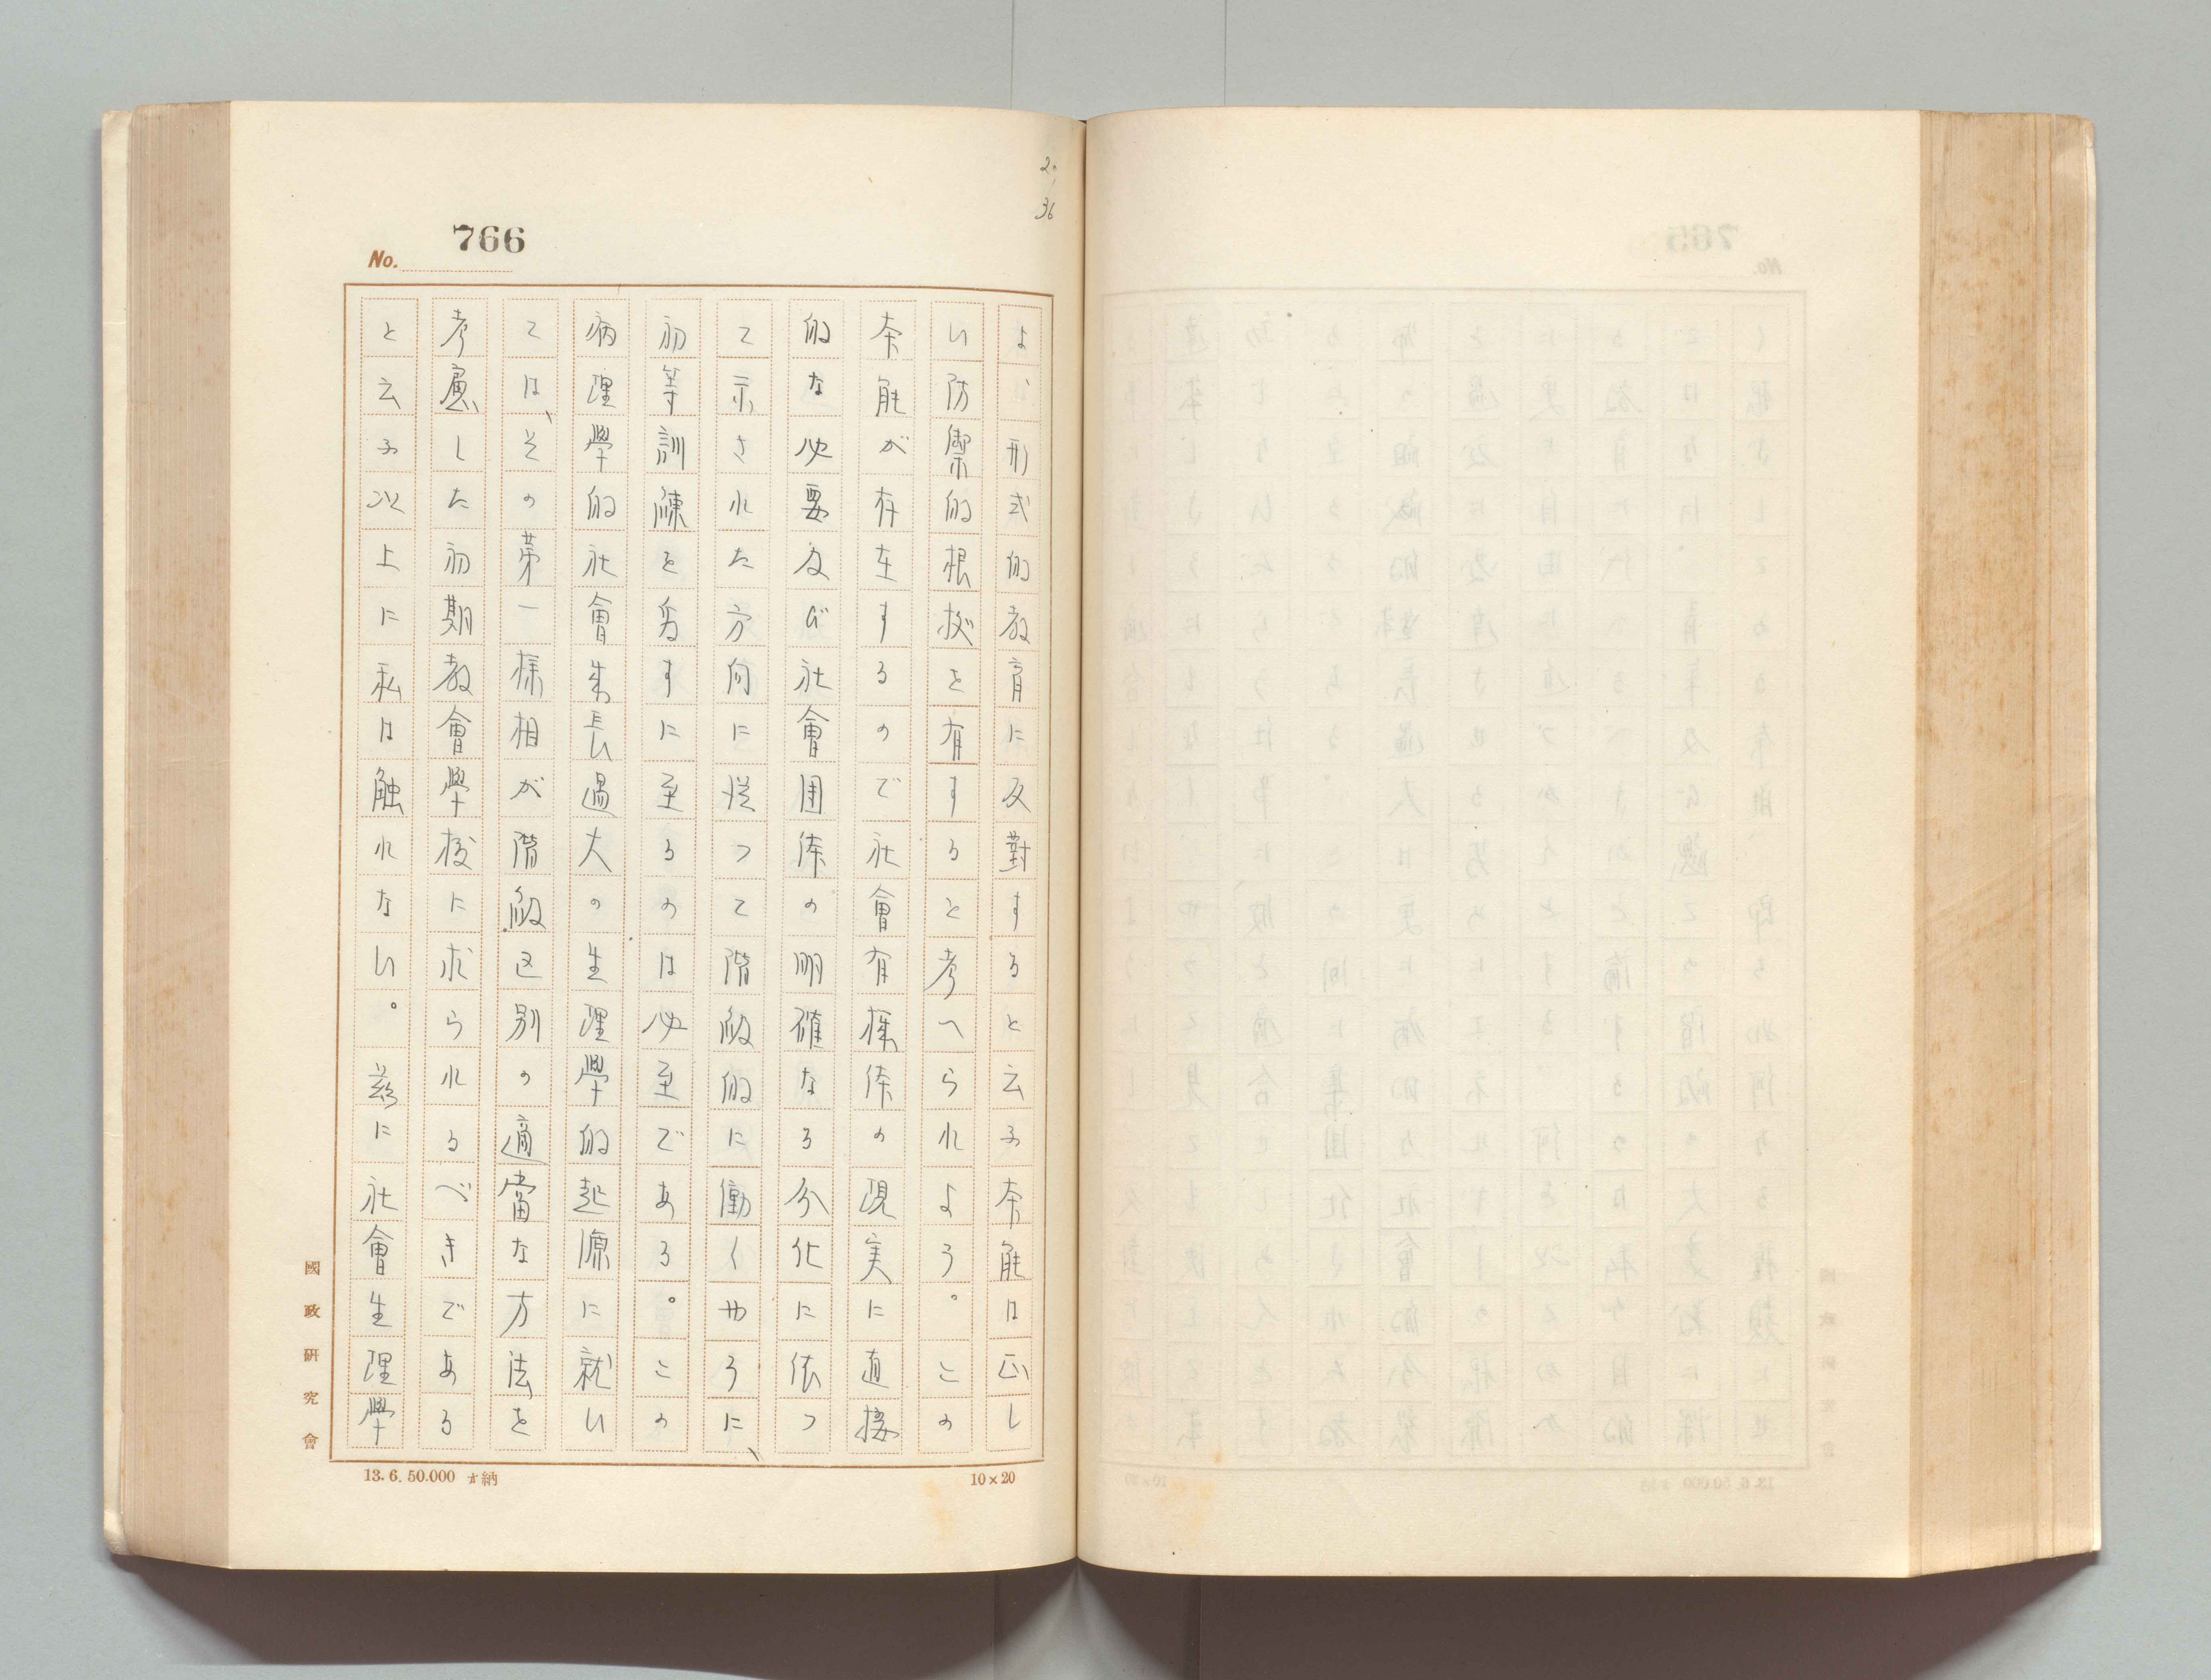 766
No.
よ、形式的教育に反對すると云ふ本能は正し
い防禦的根拠を有すると考へられよう。この
本能が存在するので社會有機体の現実に直接
的な必要及び社會囲体の明確なる分化に依つ
て示された方向に從つて階級的に働くやうに、
初等訓練を為すに至るのは必至である。この
病理學的社會生長過大の生理學的起源に就い
ては、その第一様相が階級区別の適當な方法を
考慮した初期教會學校に求られるべきである
と云ふ以上に私は触れない。茲に社會生理學
國政研究會
13.6.50.000 納
10×20